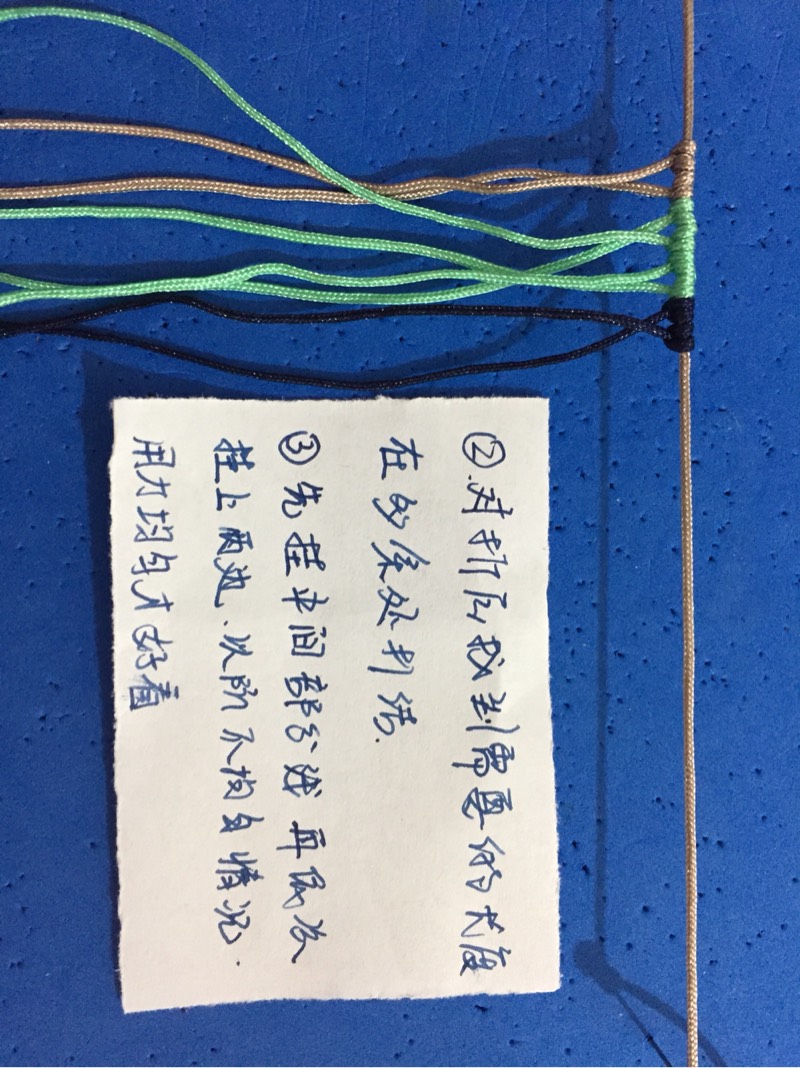 ②.对折后找到需要的长度
在处打结.
③先挂中间部分线再依次
挂上两边.以防不均匀情况.
用力均匀才好看